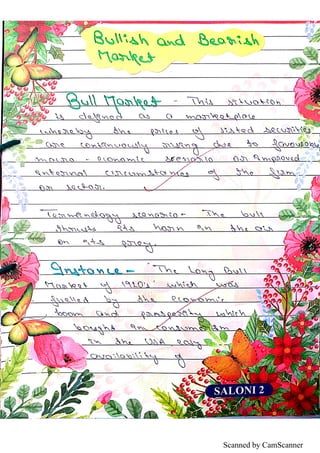 Bullish and Bearish
Market
Bull Market - This situation
is defined as a marketplace
whereby the prices of listed securities
are continuously rising due to favourable
macro - economic scenario or improved
internal circumstances of the firm
or sector.
Terminology scenario - The bull
thrusts its horn in the air
on its prey.
Instance - "The Long Bull
Market of 1920's" which was
fuelled by the economic
boom and prosperity which
bought in consumerism
in the USA easy
availability of
SALONI 2
Scanned by CamScanner